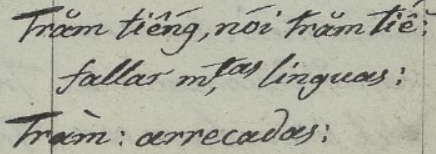 Trăm tiếng, nói trăm tiế:
fallar m,tas linguas:
Tràm: arrecadas: